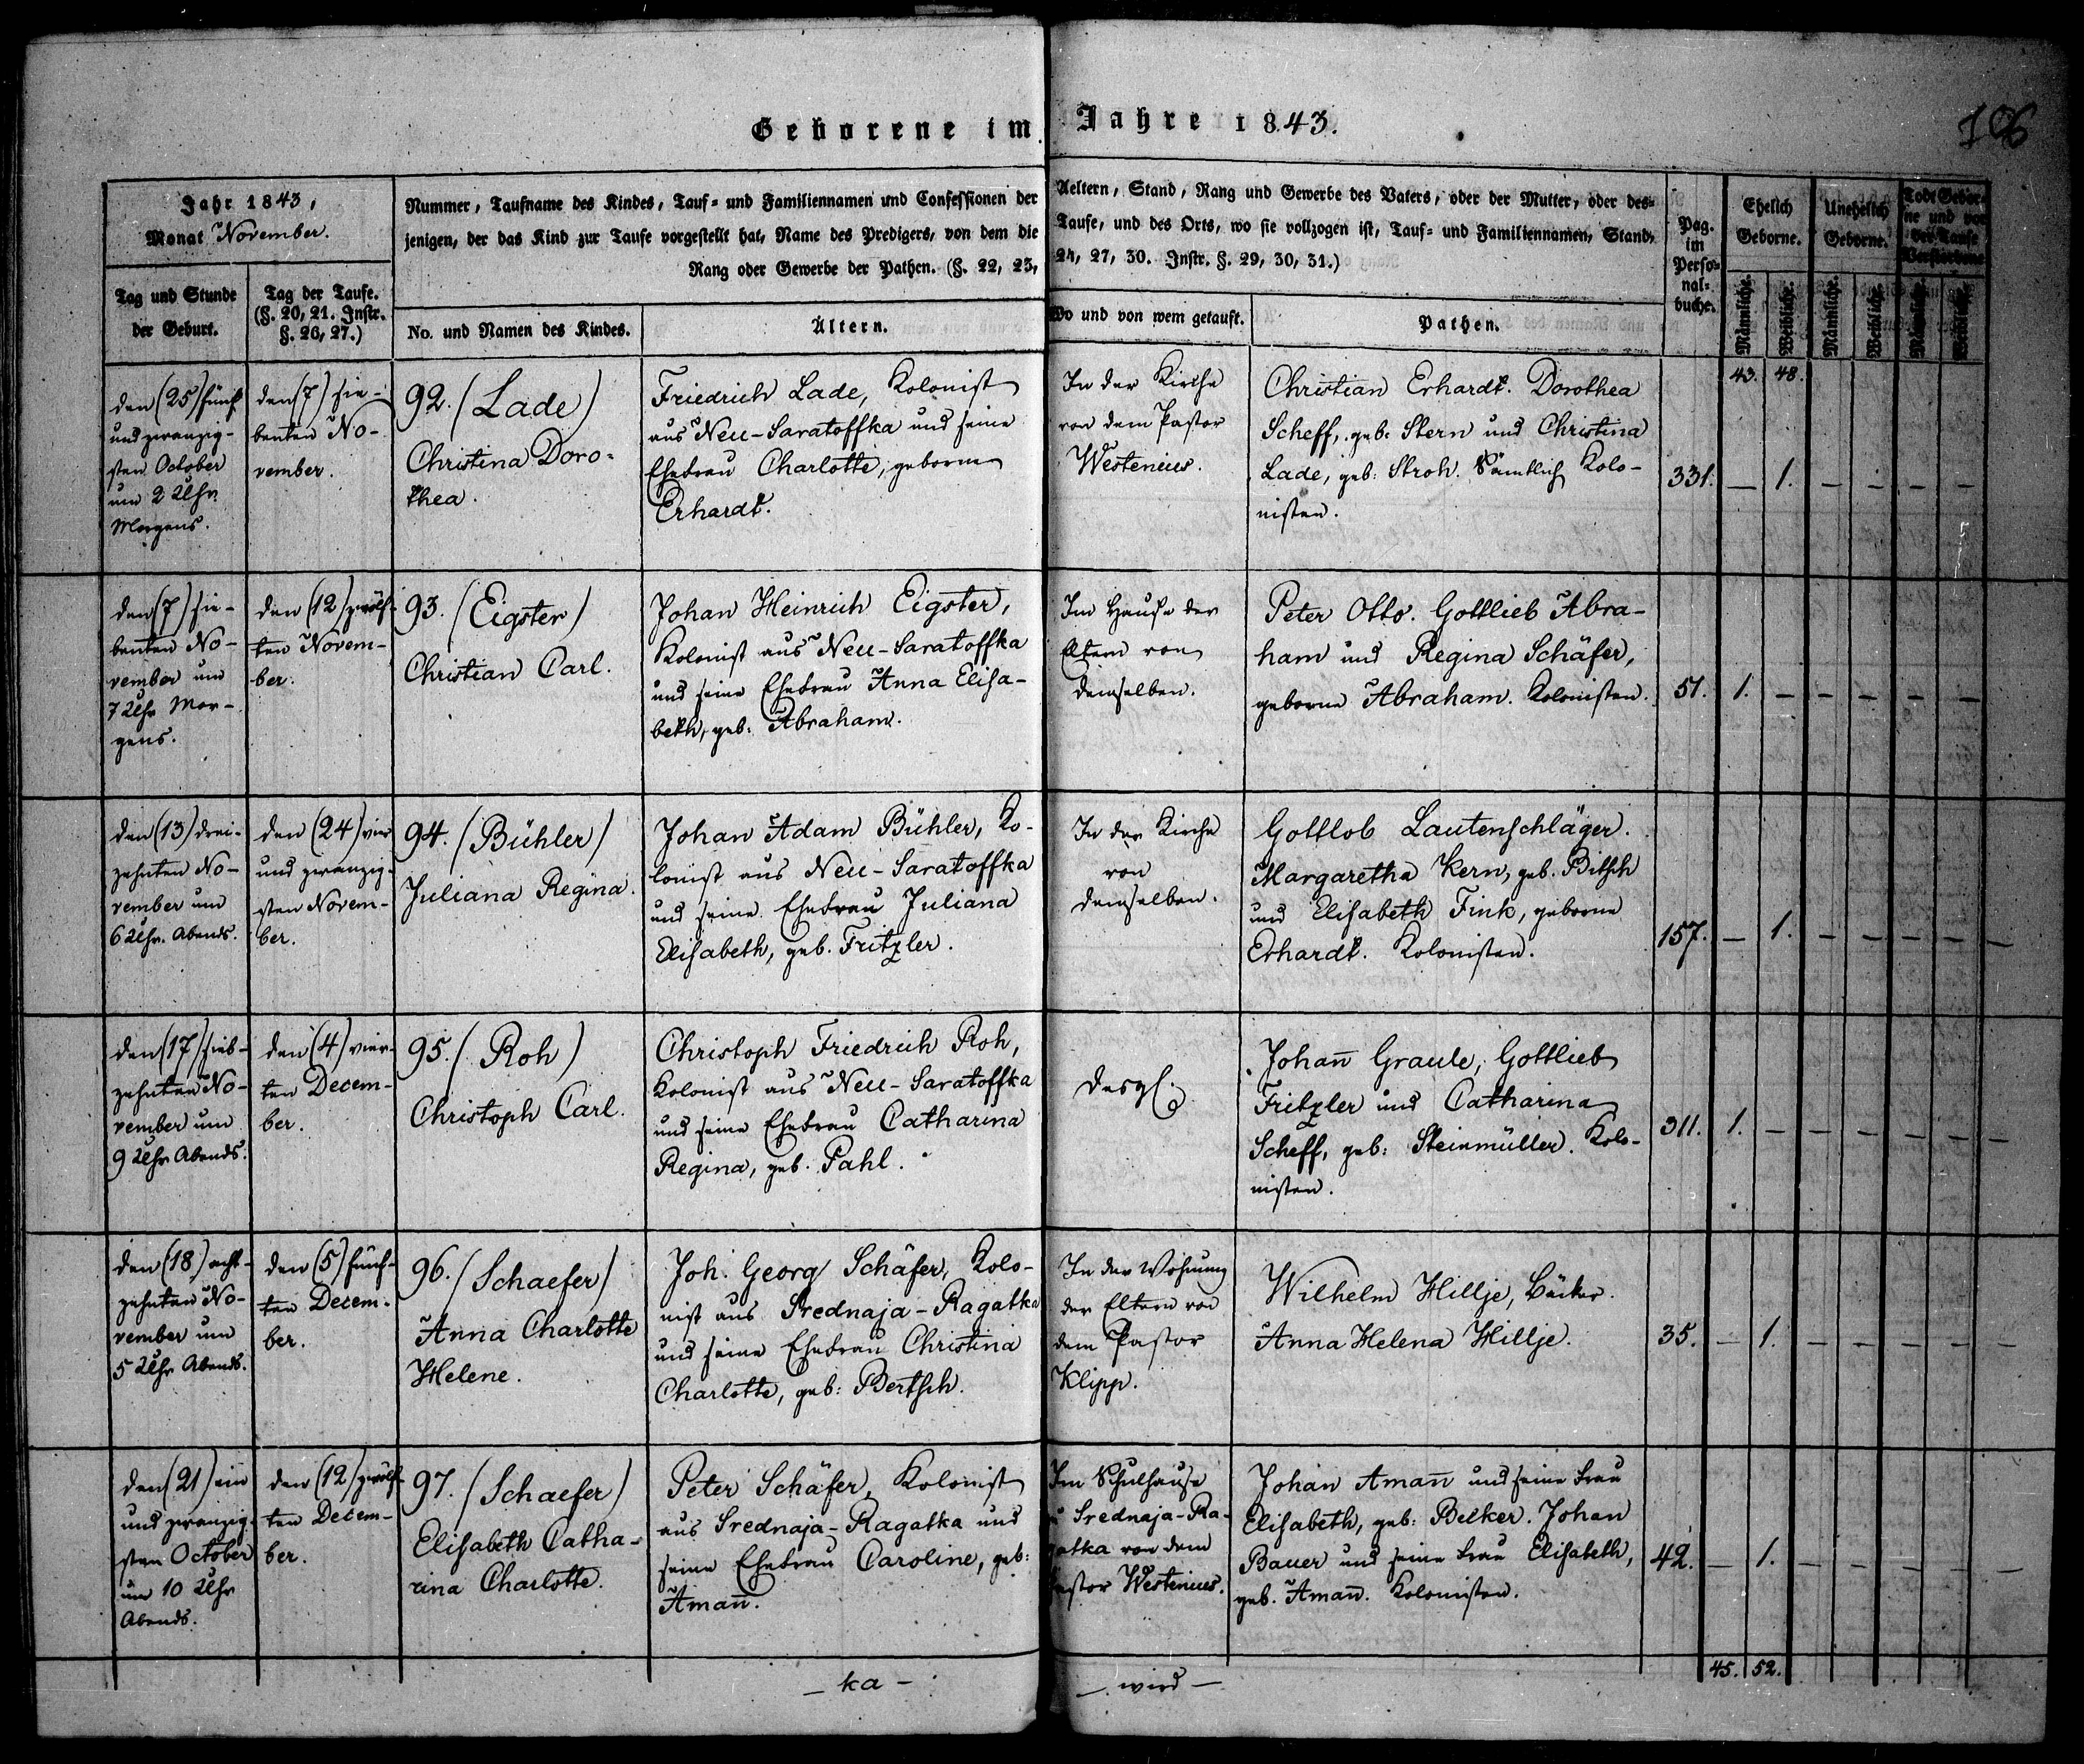 Geborene im Jahre 1843.
106
Jahr 1843,
Monat November.
Tag und Stunde
der Geburt.
Tag der Taufe.
(§. 20, 21. Instr.
§. 26, 27.)
Nummer, Taufname des Kindes, Tauf- und Familiennamen und Confessionen der
jenigen, der das Kind zur Taufe vorgestellt hat, Name des Predigers, von dem die
Rang oder Gewerbe der Pathen. (§. 22, 23,
No. und Namen des Kindes.
Ältern.
Aeltern, Stand, Rang und Gewerbe des Vaters, oder der Mutter, oder des-
Taufe, und des Orts, wo sie vollzogen ist, Tauf- und Familiennamen, Stand,
24, 27, 30. Instr. §. 29, 30, 31.)
Wo und von wem getauft.
Pathen.
Pag.
im
Perso-
nal-
buche.
Ehelich
Geborne.
Unehelich
Geborne.
Todt Gebor-
ne und vor
der Taufe
Verstorbene
Männliche.
Weibliche.
Männliche.
Weibliche.
Männliche.
Weibliche.
43. 48.
den (25) fünf
und zwanzig-
sten October
um 2 Uhr
Morgens.
den (7) sie-
benten No-
vember.
92. (Lade)
Christina Doro-
thea.
Friedrich Lade, Kolonist
aus Neu-Saratoffka und seine
Ehefrau Charlotte, geborne
Erhardt.
In der Kirche
von dem Pastor
Westenius.
Christian Erhardt. Dorothea
Scheff, geb. Stern und Christina
Lade, geb: Stroh. Sämtlich Kolo-
nisten.
331. — 1. — — — —
den (7) sie-
benten No-
vember um
7 Uhr Mor-
gens.
den (12) zwölf-
ten Novem-
ber.
93. (Eigster)
Christian Carl.
Johan Heinrich Eigster,
Kolonist aus Neu-Saratoffka
und seine Ehefrau Anna Elisa-
beth, geb: Abraham.
Im Hause der
Eltern von
demselben.
Peter Otto. Gottlieb Abra-
ham und Regina Schäfer,
geborne Abraham. Kolonisten.
51. 1. — — — — —
den (13) drei-
zehnten No-
vember um
6 Uhr. Abends.
den (24) vier
und zwanzig-
sten Novem-
ber.
94. (Bühler)
Juliana Regina.
Johan Adam Bühler, Ko-
lonist aus Neu-Saratoffka
und seine Ehefrau Juliana
Elisabeth, geb. Fritzler.
In der Kirche
von
demselben.
Gottlob Lautenschläger.
Margaretha Kern, geb. Bitsch
und Elisabeth Fink, geborne
Erhardt. Kolonisten.
157. — 1. — — — —
den (17) sieb-
zehnten No-
vember um
9 Uhr Abends.
den (4) vier-
ten Decem-
ber.
95. (Roh)
Christoph Carl.
Christoph Friedrich Roh,
Kolonist aus Neu-Saratoffka
und seine Ehefrau Catharina
Regina, geb. Pahl.
desgl.
Johan̄ Graule, Gottlieb
Fritzler und Catharina
Scheff, geb: Steinmüller. Kolo-
nisten.
311. 1. — — — — —
den (18) acht-
zehnten No-
vember um
5 Uhr Abends.
den (5) fünf-
ten Decem-
ber.
96. (Schaefer)
Anna Charlotte
Helene.
Joh. Georg Schäfer, Kolo-
nist aus Srednaja-Ragatka
und seine Ehefrau Christina
Charlotte, geb: Bertsch.
In der Wohnung
der Eltern von
dem Pastor
Klipp.
Wilhelm Hillje, Bäcker.
Anna Helena Hillje.
35. — 1. — — — —
den (21) ein
und zwanzig-
sten October
um 10 Uhr
Abends.
den (12) zwölf-
ten Decem-
ber.
97. (Schaefer)
Elisabeth Catha-
rina Charlotte.
Peter Schäfer, Kolonist
aus Srednaja-Ragatka und
seine Ehefrau Caroline, geb:
Aman̄.
Im Schulhause
Srednaja-Ra-
gatka von dem
Pastor Westenius.
Johan Aman̄ und seine Frau
Elisabeth, geb: Belker. Johan
Bauer und seine Frau Elisabeth,
geb. Aman̄. Kolonisten.
42. — 1. — — — —
45. 52.
— ka —
— wird —